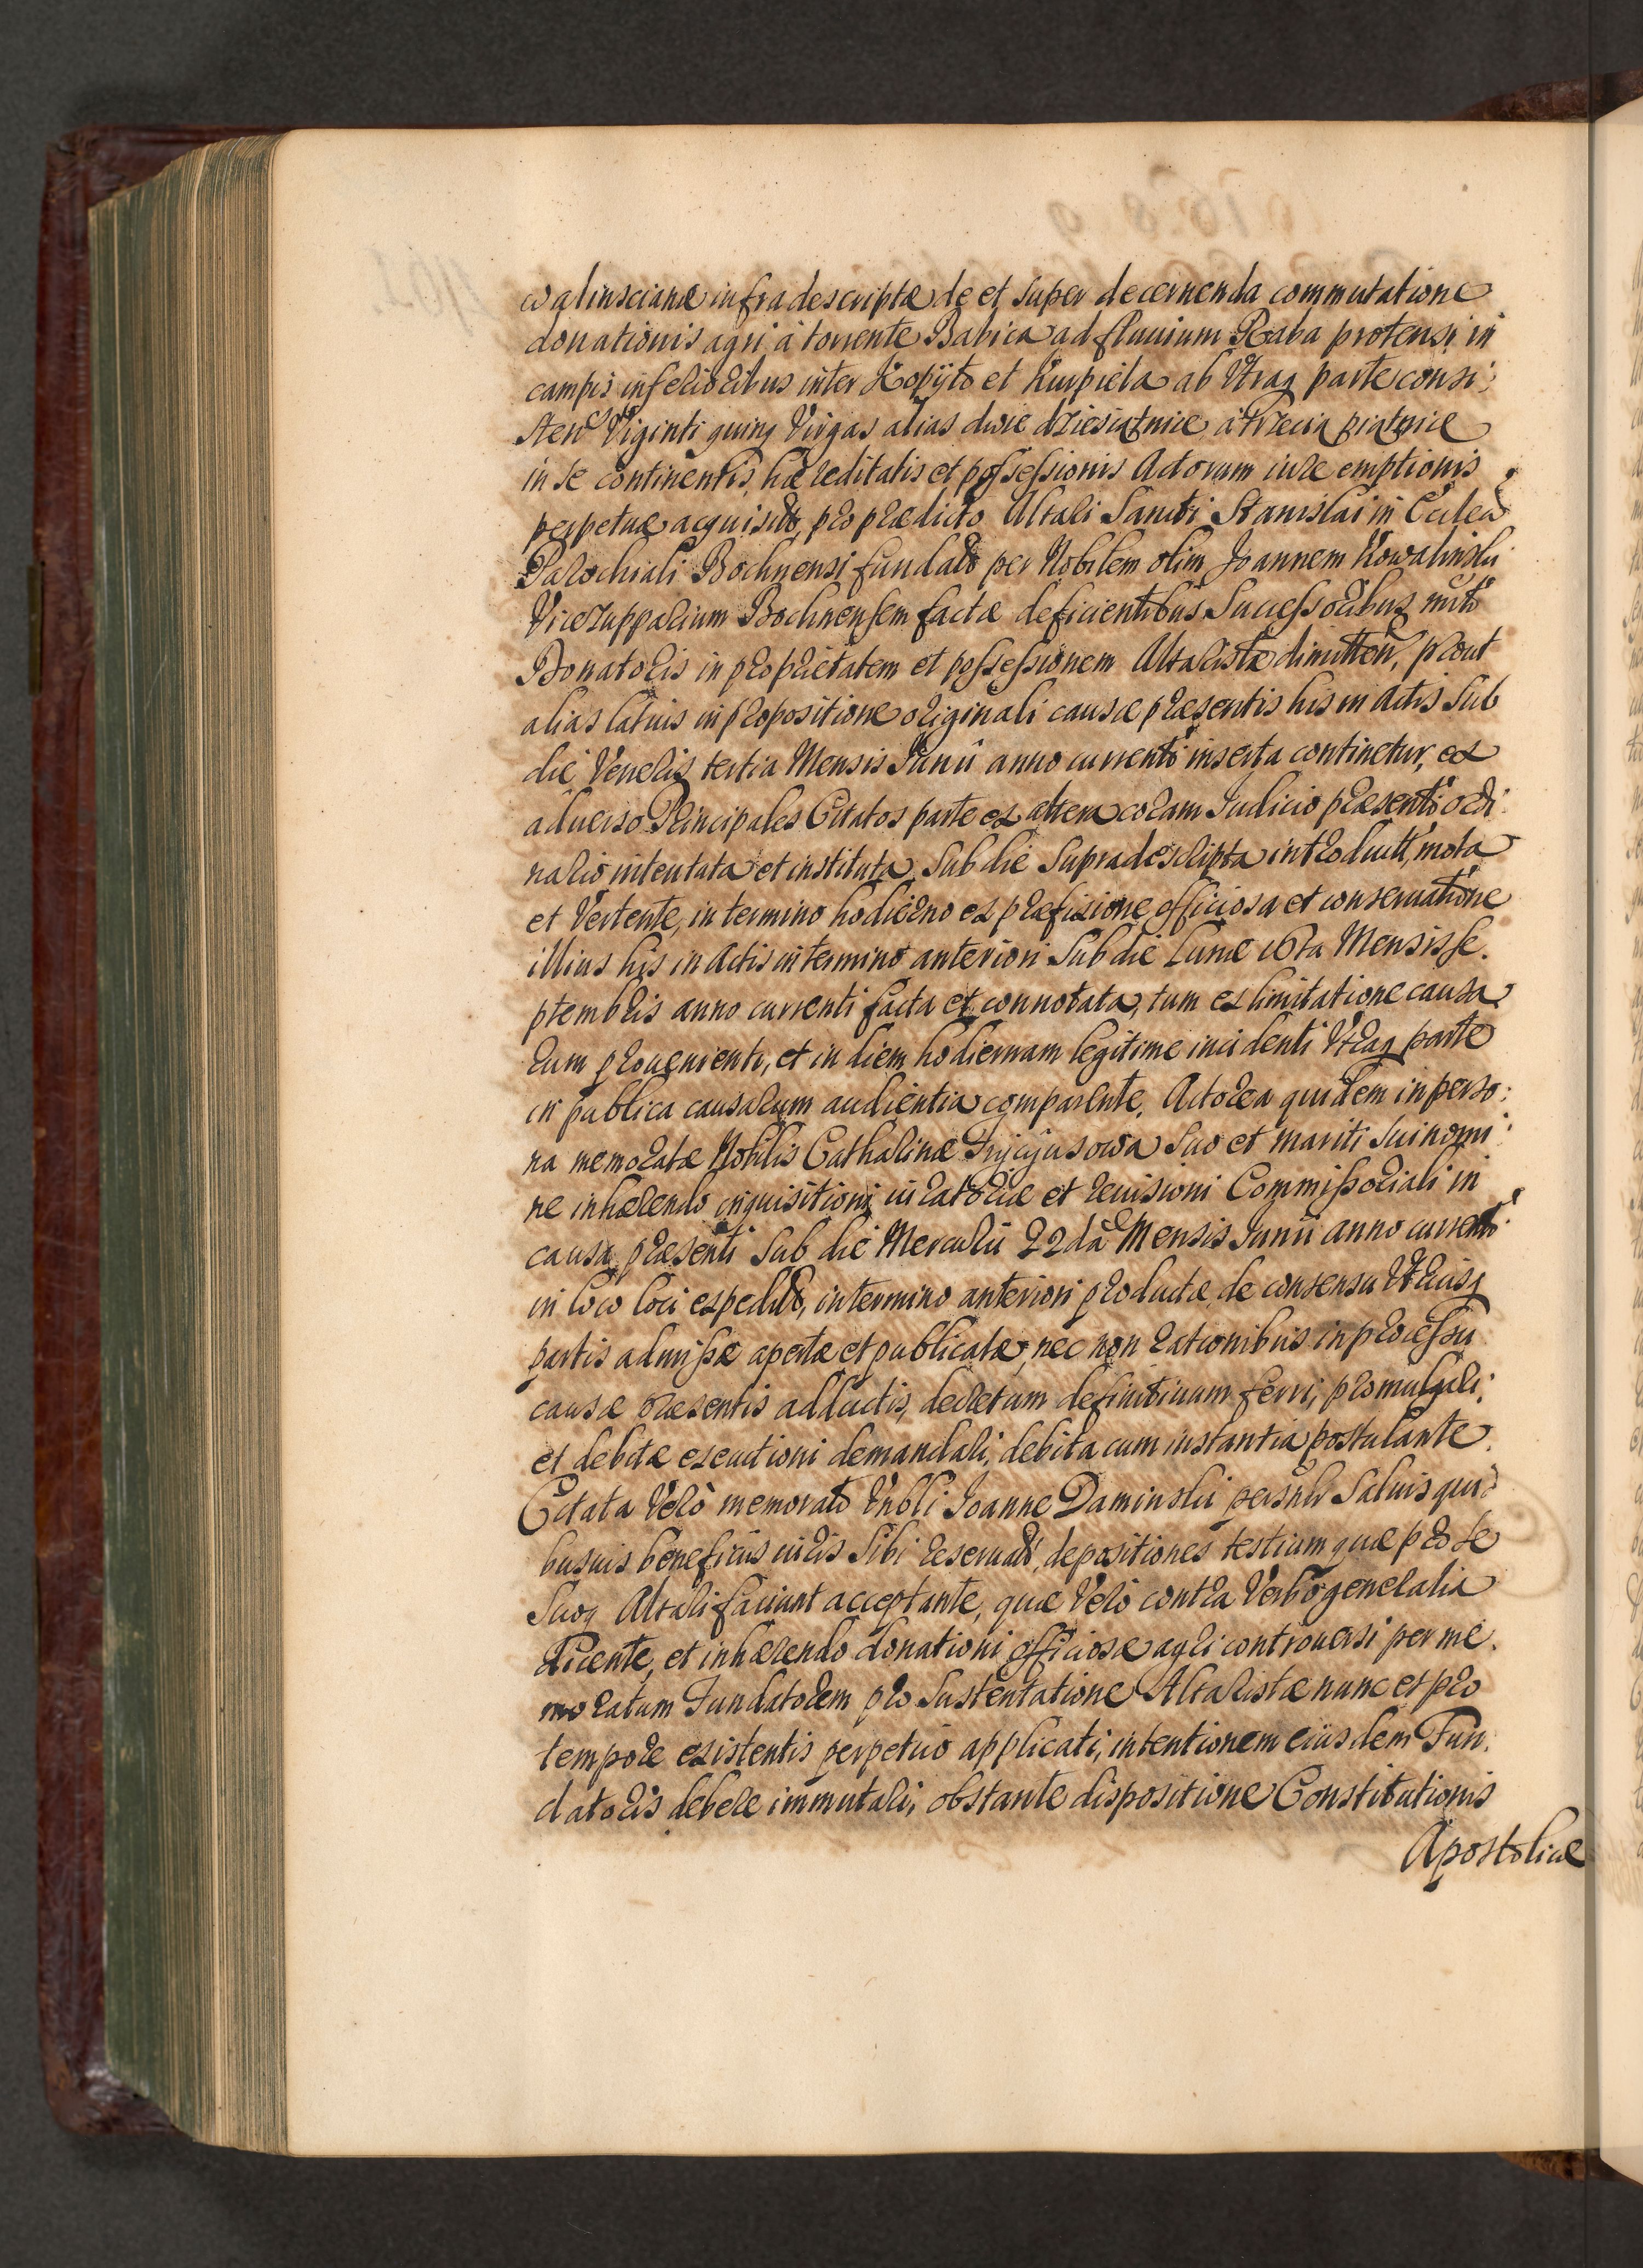 walinsciana infradescriptæ de et super decernenda commutatione
donationis agri à torrente Babica ad fluuium Raba protensi in
campis inferioribus inter Kopijto et Kurpiela ab Utraq parte consi:
sten Viginti quinq Virgas alias dwie dziesiątnice à trzecią piątnicę
in se continentis, hæreditatis et possessionis Actorum iure emptionis
perpetuæ acquisit, pro prædicto Altari Sancti Stanislai in Eccleâ
Parochiali Bochnensi fundato per Nobilem olim Joannem Kowalinski
Vicezupparium Bochnensem factæ deficientibus Successoribus mito
Donatoris in proprietatem et possessionem Altaristæ dimitten, prout
alias latius in propositione originali causæ præsentis his in Actis sub
die Veneris tertia Mensis Junii anno currenti inserta continetur, ex
aduerso Principales Citatos parte ex altera coram Judicio præsenti ordi:
nario intentata et instituta, sub die supradescripta introducti, mota
et Vertente, in termino hodierno ex præfixione officiosa et conseruatione
illius his in Actis in termino anteriori Sub die Lunæ 16ta Mensis Se.
ptembris anno currenti facta et connotata, tum ex limitatione causa
rum proueniente, et in diem hodiernam legitime incidenti Utraq parte
in publica causarum audientia comparente, Actorea quidem in perso:
na memoratæ Nobilis Catharinæ Suo et mariti sui nomi:
ne inhærendo inquisitioni iuratoriæ et reuisioni Commissoriali in
causa præsenti Sub die Mercurii 22dâ Mensis Junii anno currenti
in loco loci expedit, in termino anteriori productæ, de consensu Utriusq
partis admissæ apertæ et publicatæ, nec non rationibus in processu
causæ præsentis adductis, decretum definitiuum ferri, promulgari,
et debitæ executioni demandari, debita cum instantia postulante.
Citata Vero memorato Joanne Daminski Saluis qui:
busuis beneficiis iuris Sibi reseruat, depositiones testium quæ pro se
Suoq Altari faciunt acceptante, quæ Vero contra Verbo generalia
dicente, et inhærendo donationi officiosæ agri controuersi per me.
moratum Fundatorem pro Sustentatione Altaristæ nunc et pro
tempore existentis perpetuò applicati, intentionem eiusdem Fun.
datoris debere immutari, obstante dispositione Constitutionis
Apostolicæ